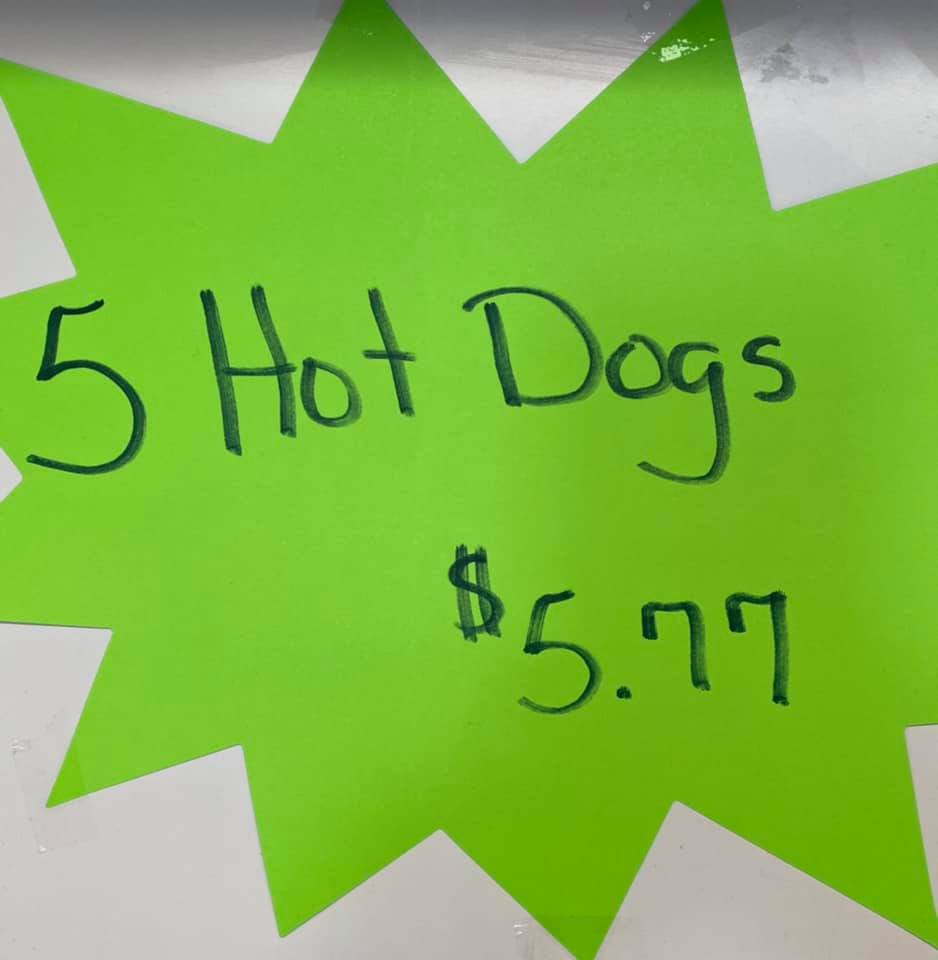 5 Hot Dogs
$5.77